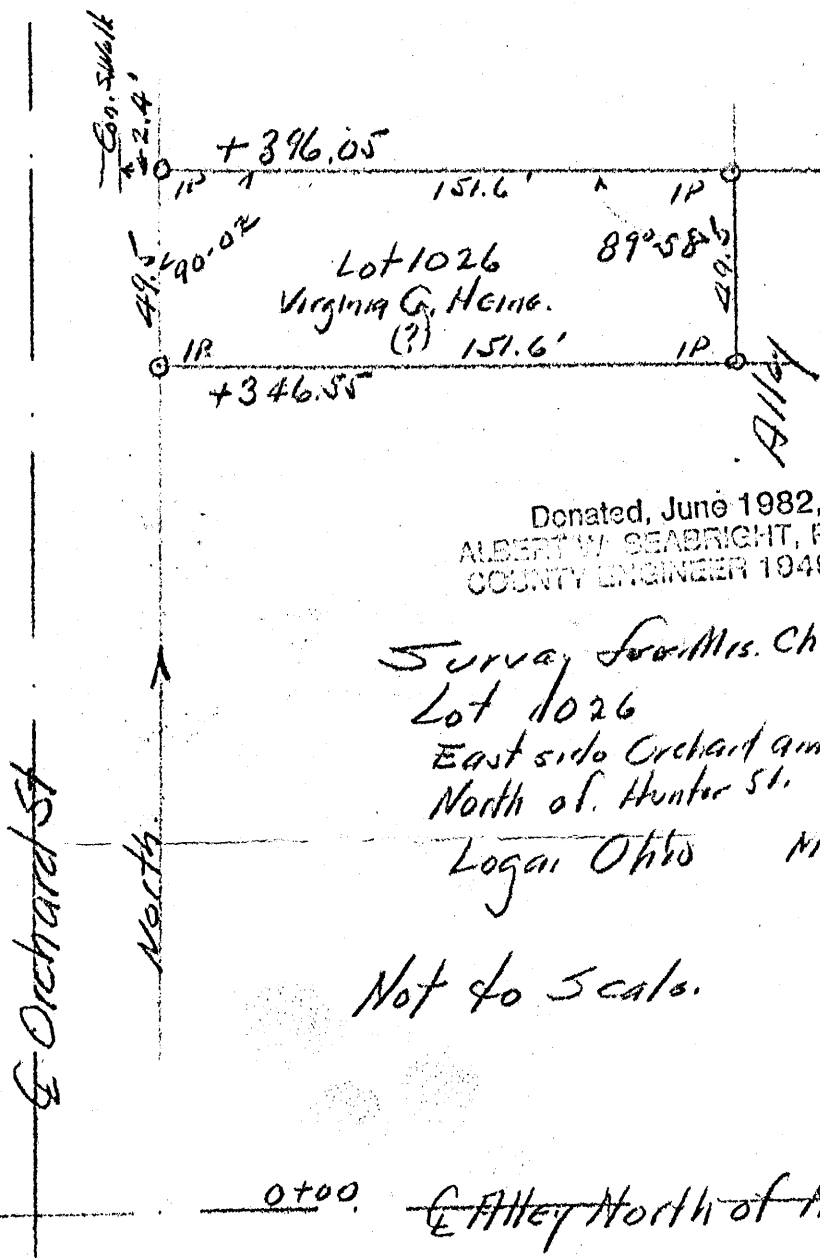 Con. S.Walk
2.4'
+396.05
IP
151.6'
IP
90°02'
89°58'
49.5
49.5
Lot 1026
Virginia G. Heine.
(?)
IP
151.6'
IP
+346.55
Alley
Donated, June 1982,
ALBERT W. SEABRIGHT, P
COUNTY ENGINEER 1949
Survey for Mrs. Ch
Lot 1026
East side Orchard an
North of. Hunter St.
Logan Ohio
Not to Scale.
North.
℄ Orchard St
0+00.
℄ Alley North of